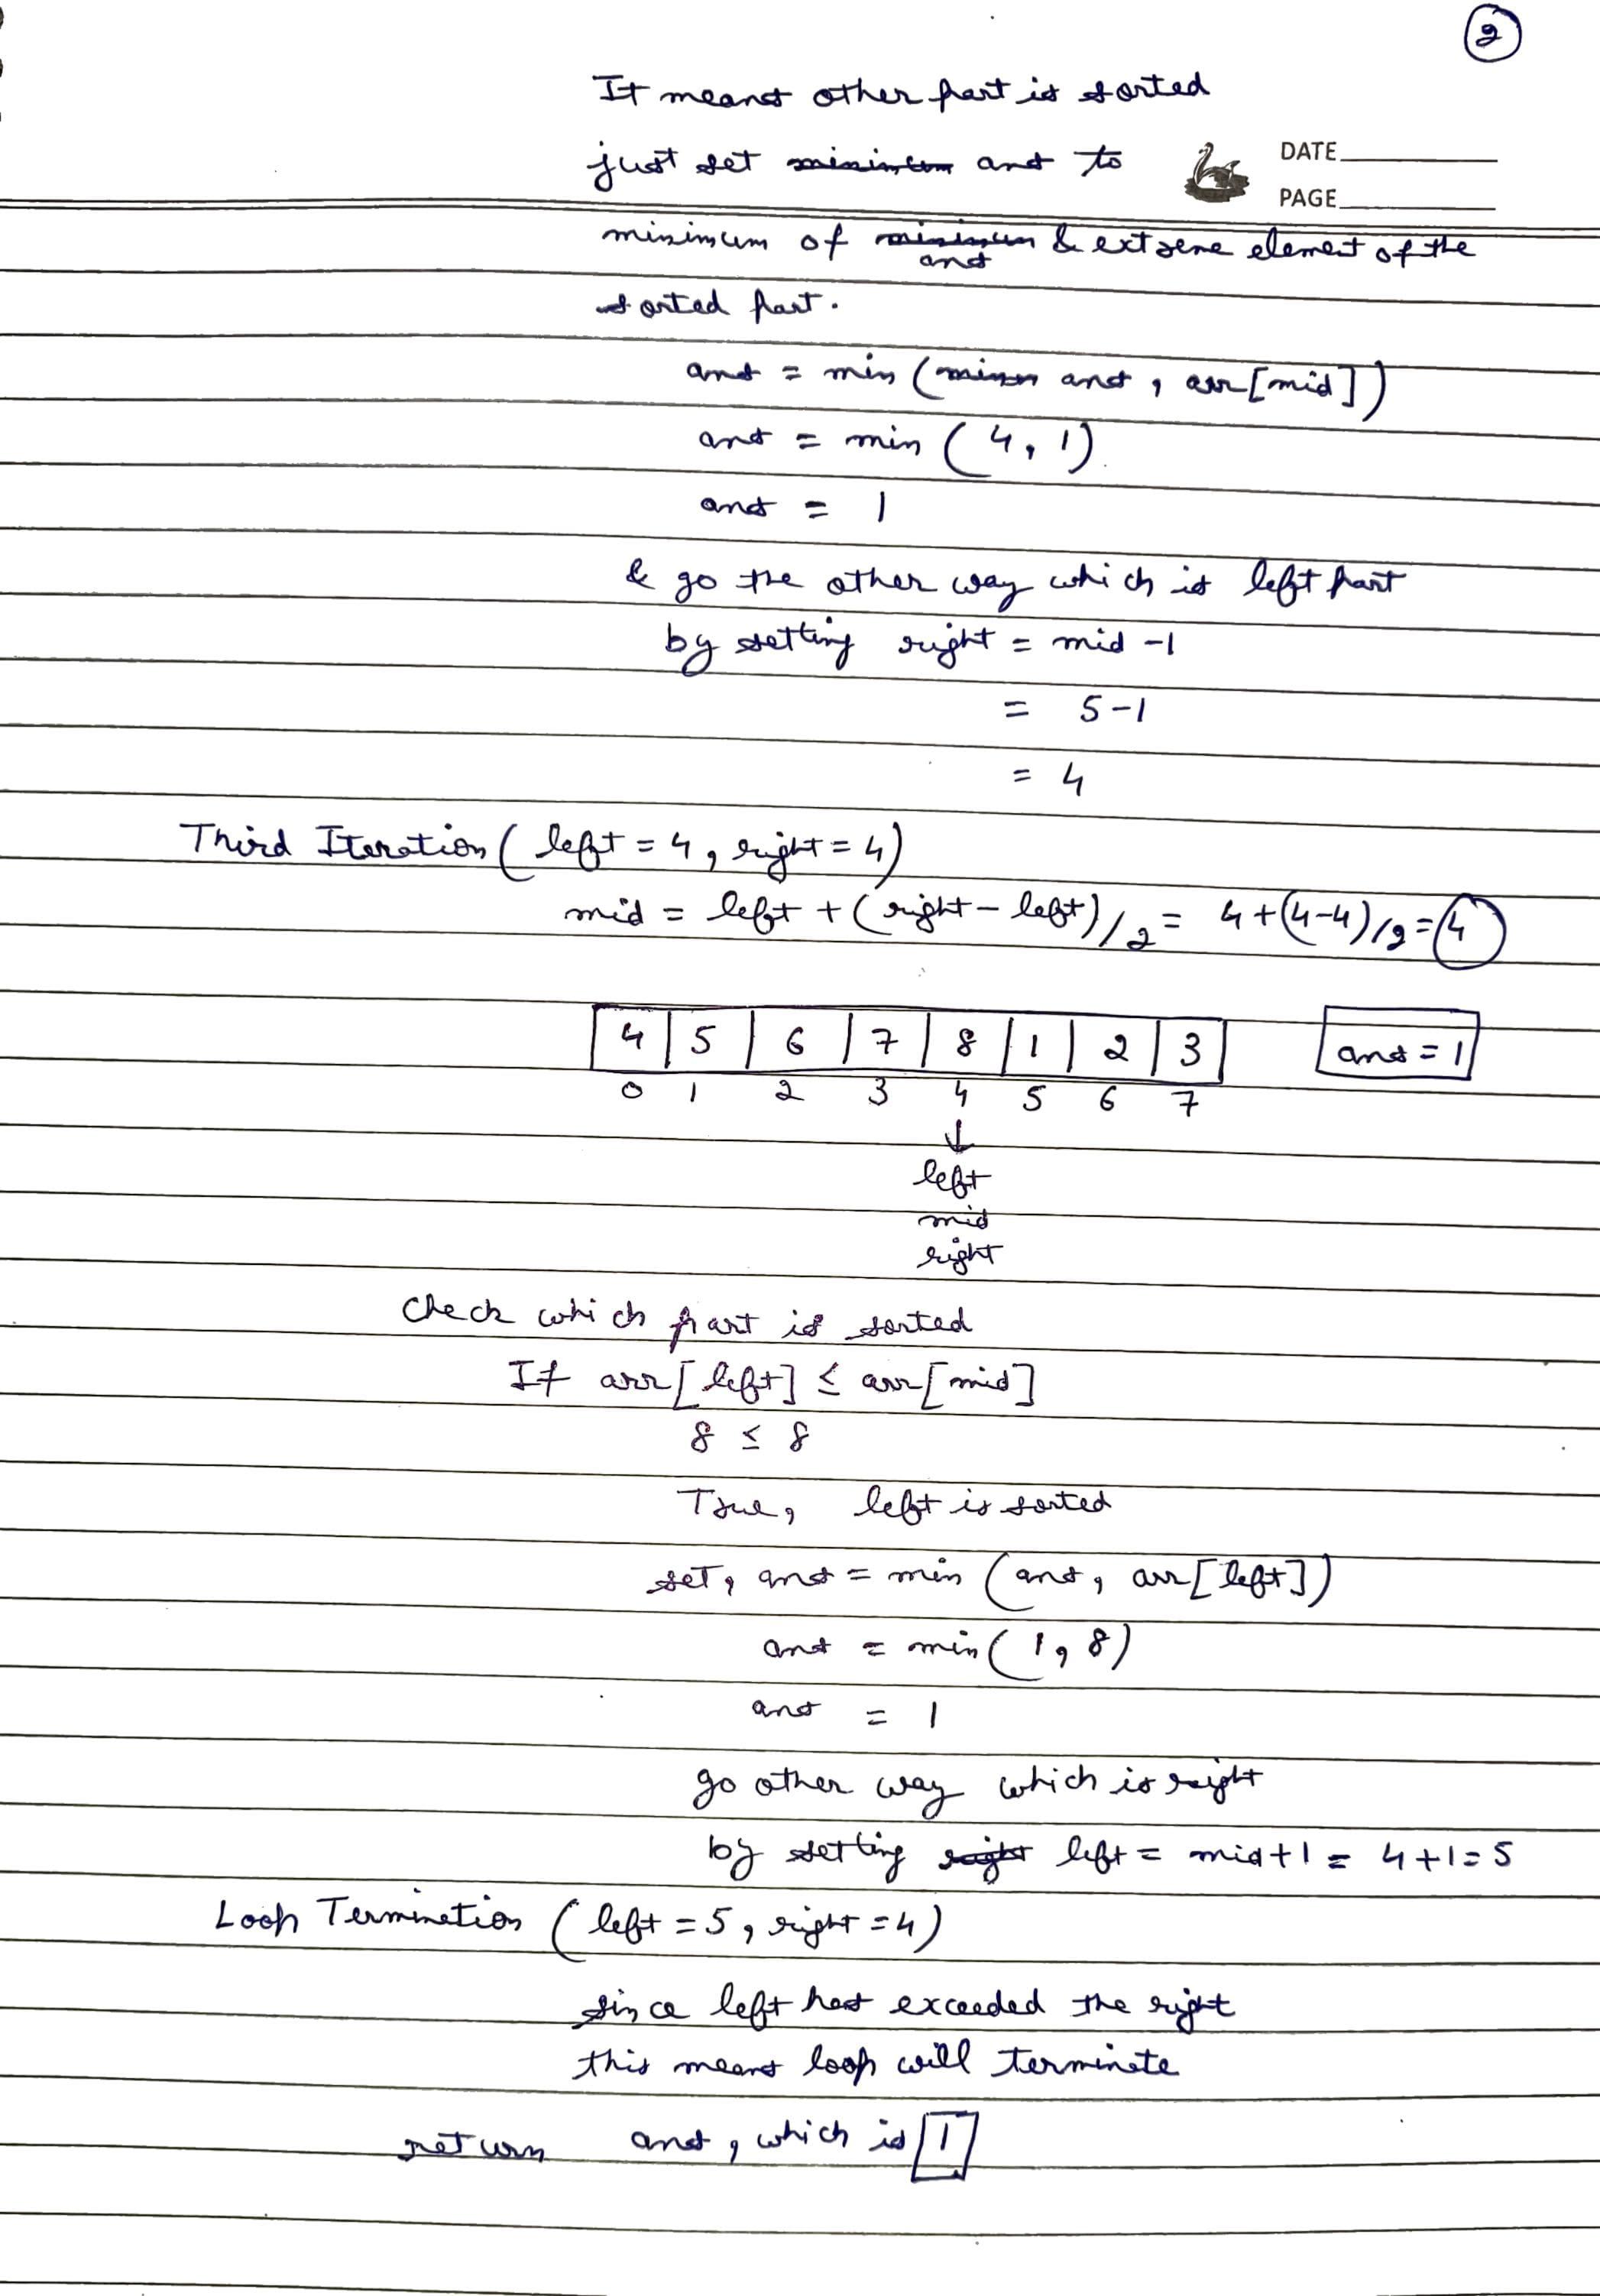 2
It means other part is sorted
just set minimum ans to
DATE
PAGE
minimum of minimum & extreme element of the
ans
sorted part.
ans = min ( ans , arr[mid])
ans = min ( 4, 1)
ans = 1
& go the other way which is left part
by setting right = mid -1
= 5-1
= 4
Third Iteration ( left = 4, right = 4)
mid = left + ( right - left)/2 = 4+(4-4)/2 = 4
4 5 6 7 8 1 2 3
ans = 1
0 1 2 3 4 5 6 7
↓
left
mid
right
Check which part is sorted
If arr[left] ≤ arr[mid]
8 ≤ 8
True, left is sorted
set, ans = min (ans, arr[left])
ans = min( 1, 8)
ans = 1
go other way which is right
by setting right left = mid+1 = 4+1=5
Loop Termination ( left = 5, right = 4)
since left has exceeded the right
this means loop will terminate
return ans, which is 1